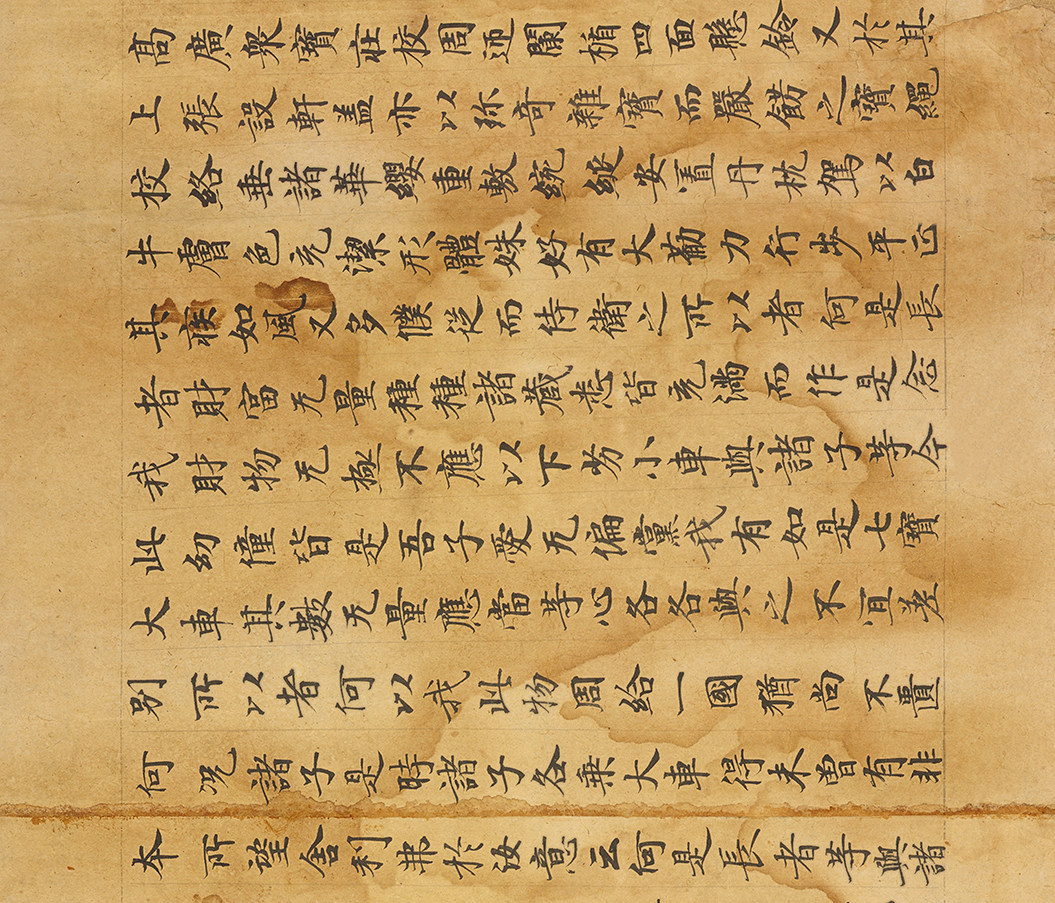 髙廣衆寶莊校周迊闌楯四面懸鈴又於其
上張設軒盖亦以珎奇雜寶而嚴餝之寶繩
校絡垂諸華纓重敷綩綖安置丹枕駕以白
牛膚色充潔形體姝好有大筋力行步平正
其疾如風又多僕從而侍衛之所以者何是長
者財富无量種種諸藏悉皆充滿而作是念
我財物无極不應以下劣小車與諸子等今
此幼僮皆是吾子愛无偏黨我有如是七寶
大車其數无量應當等心各各與之不宜差
別所以者何以我此物周給一國猶尚不匱
何况諸子是時諸子各乗大車得未曽有非
本所望舍利弗於汝意云何是長者等與諸